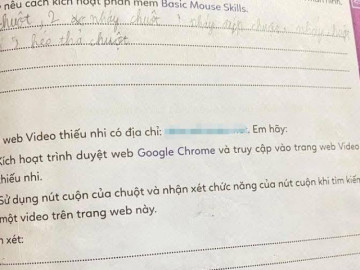 nêu cách kích hoạt phần mềm Basic Mouse Skills.
chuột, 2 nháy chuột 1 nháy chuột
3 kéo thả chuột
web Video thiếu nhi có địa chỉ: . Em hãy:
Kích hoạt trình duyệt web Google Chrome và truy cập vào trang web Video
thiếu nhi.
Sử dụng nút cuộn của chuột và nhận xét chức năng của nút cuộn khi tìm kiếm
một video trên trang web này.
xét: